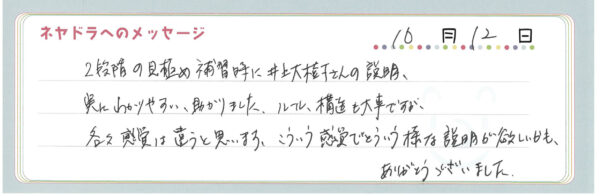 ネヤドラへのメッセージ 10月12日
2段階の見極め補習時に井上大樹さんの説明、
実にわかりやすい、助かりました。ルール、構造も大事ですが、
各々感覚は違うと思います。こういう感覚でこういう様な説明が欲しいかも、
ありがとうございました。